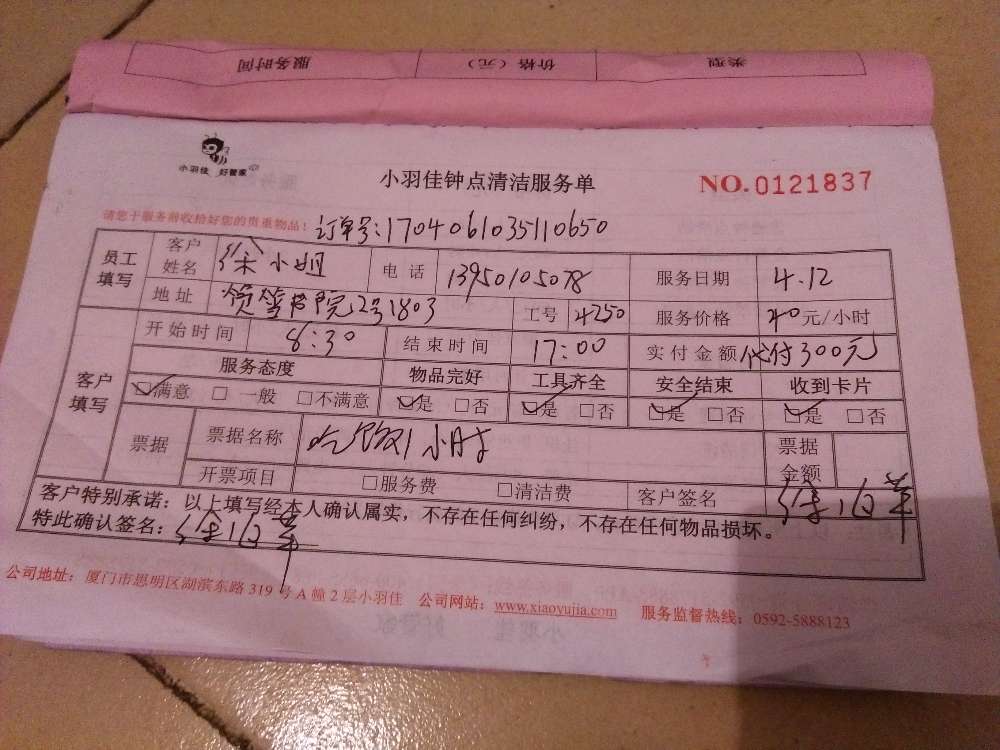 服务时间 价格（元） 类型
小羽佳 好管家
小羽佳钟点清洁服务单 NO.0121837
请您于服务前收拾好您的贵重物品！ 订单号:1704061035110650
员工填写 客户姓名 徐小姐 电话 13950105078 服务日期 4.12
地址 筼筜书院2号1803 工号 4250 服务价格 40元/小时
客户填写 开始时间 8:30 结束时间 17:00 实付金额 代付300元
服务态度 物品完好 工具齐全 安全结束 收到卡片
☑满意 □一般 □不满意 ☑是 □否 ☑是 □否 ☑是 □否 ☑是 □否
票据 票据名称 吃饭1小时 票据金额
开票项目 □服务费 □清洁费 客户签名
客户特别承诺：以上填写经本人确认属实，不存在任何纠纷，不存在任何物品损坏。
特此确认签名：
公司地址：厦门市思明区湖滨东路 319 号 A 幢 2 层小羽佳 公司网站：www.xiaoyujia.com 服务监督热线：0592-5888123